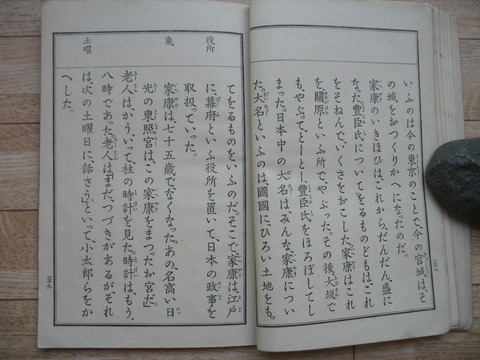 いふのは今の東京のことで、今の宮城は、そ
の城をおつくりかへになったのだ。
家康のいきほひは、これから、だんだん盛に
なった。豊臣氏についてをるものどもは、これ
をそねんで、いくさをおこした。家康はこれ
を關原といふ所でやぶった。その後、大坂で
も、やぶって、とーとー豊臣氏をほろぼしてし
まった。日本中の大名は、みんな家康につい
た。大名といふのは國國にひろい土地をも
三十八
てをるものをいふのだ。そこで家康は、江戸
に、幕府といふ役所を置いて、日本の政事を
取扱っていった。
家康は七十五歳でなくなった。あの名高い日
光の東照宮は、この家康をまつったお宮だ。」
老人は、かういって、柱の時計を見た。時計は、もう、
八時であった。老人は「まだ、つづきがあるが、それ
は、次の土曜日に話さう。」といって、小太郎らをか
へした。
役所
歳
土曜
三十九